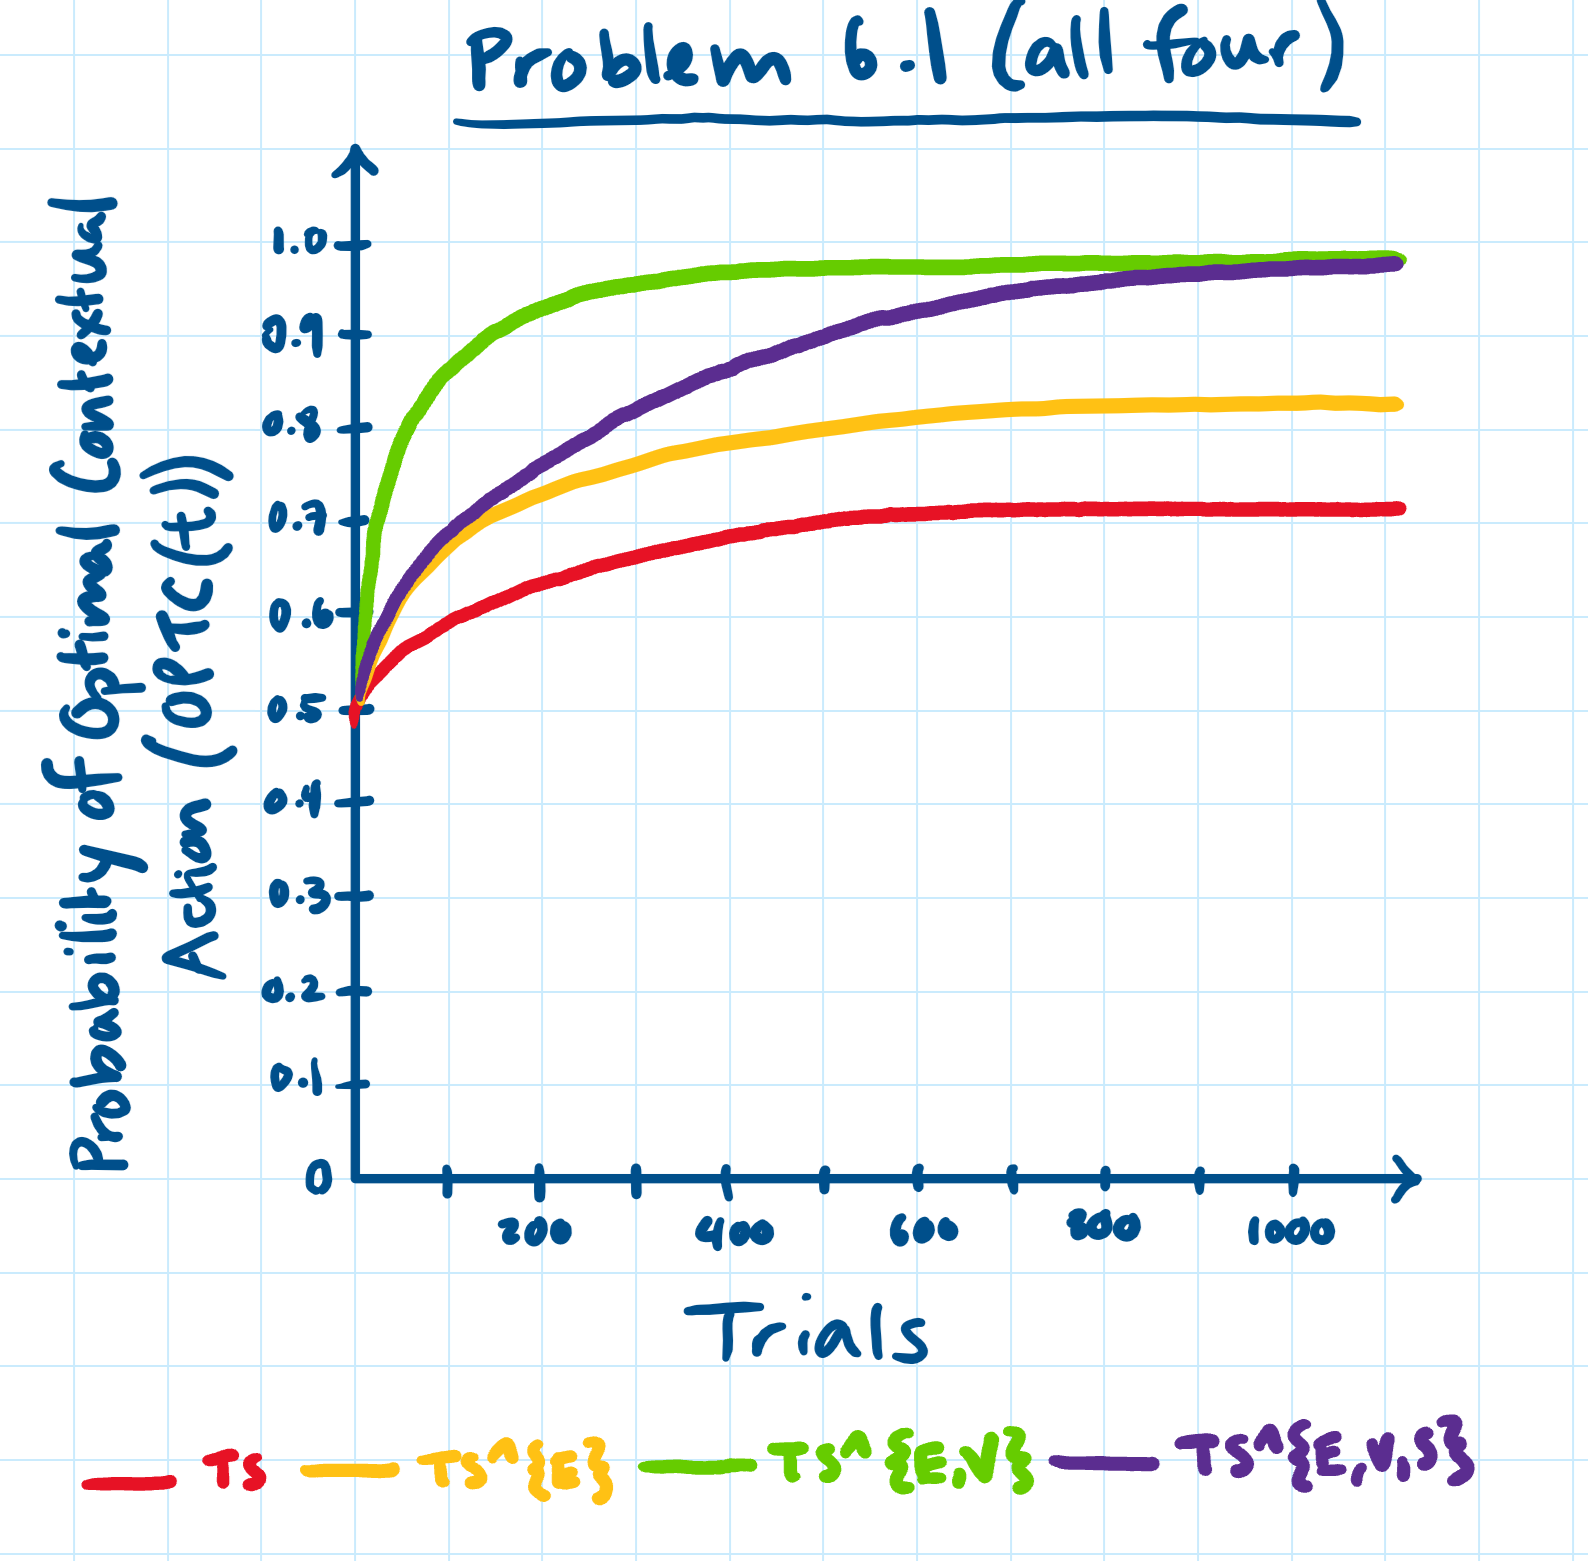 Problem 6.1 (all four)
Probability of Optimal Contextual
Action (OPTC(t))
1.0
0.9
0.8
0.7
0.6
0.5
0.4
0.3
0.2
0.1
0
200 400 600 800 1000
Trials
TS TS^{E} TS^{E,V} TS^{E,V,S}